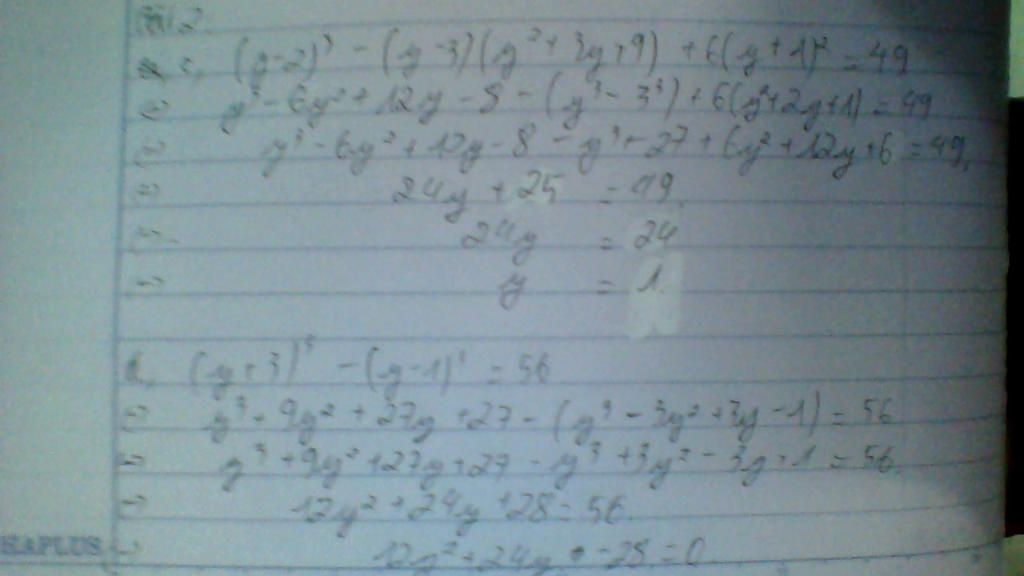 c, (y-2)³ - (y-3)(y²+3y+9) + 6(y+1)² = 49
⇔ y³ - 6y² + 12y - 8 - (y³ - 3³) + 6(y²+2y+1) = 49
⇔ y³ - 6y² + 12y - 8 - y³ + 27 + 6y² + 12y + 6 = 49
⇔ 24y + 25 = 49
⇔ 24y = 24
⇔ y = 1
d, (y+3)³ - (y-1)³ = 56
⇔ y³ + 9y² + 27y + 27 - (y³ - 3y² + 3y - 1) = 56
⇔ y³ + 9y² + 27y + 27 - y³ + 3y² - 3y + 1 = 56
⇔ 12y² + 24y + 28 = 56
HAPLUS ⇔ 12y² + 24y - 28 = 0